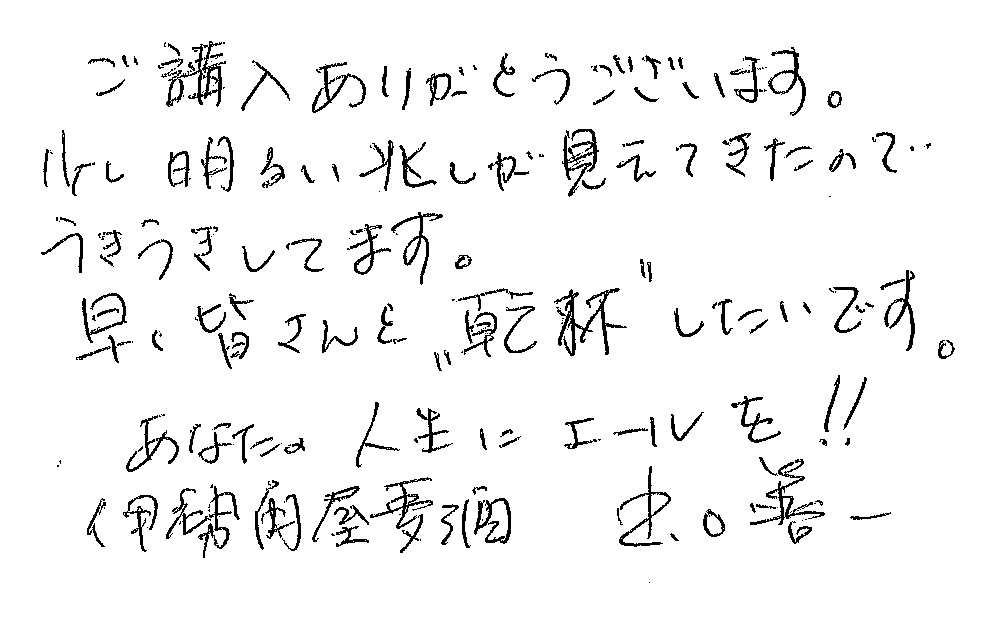 ご講入ありがとうございます。
少し明るい兆しが見えてきたので
うきうきしてます。
早く皆さんと〝乾杯〟したいです。
あなたの人生にエールを!!
伊勢角屋麦酒 出口善一